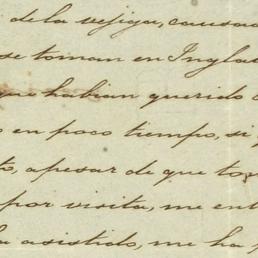 de la vejiga, causa
se toman en Ingla
que habian querido
en poco tiempo, si
apesar de que to
por visita, me en
asistido, me ha